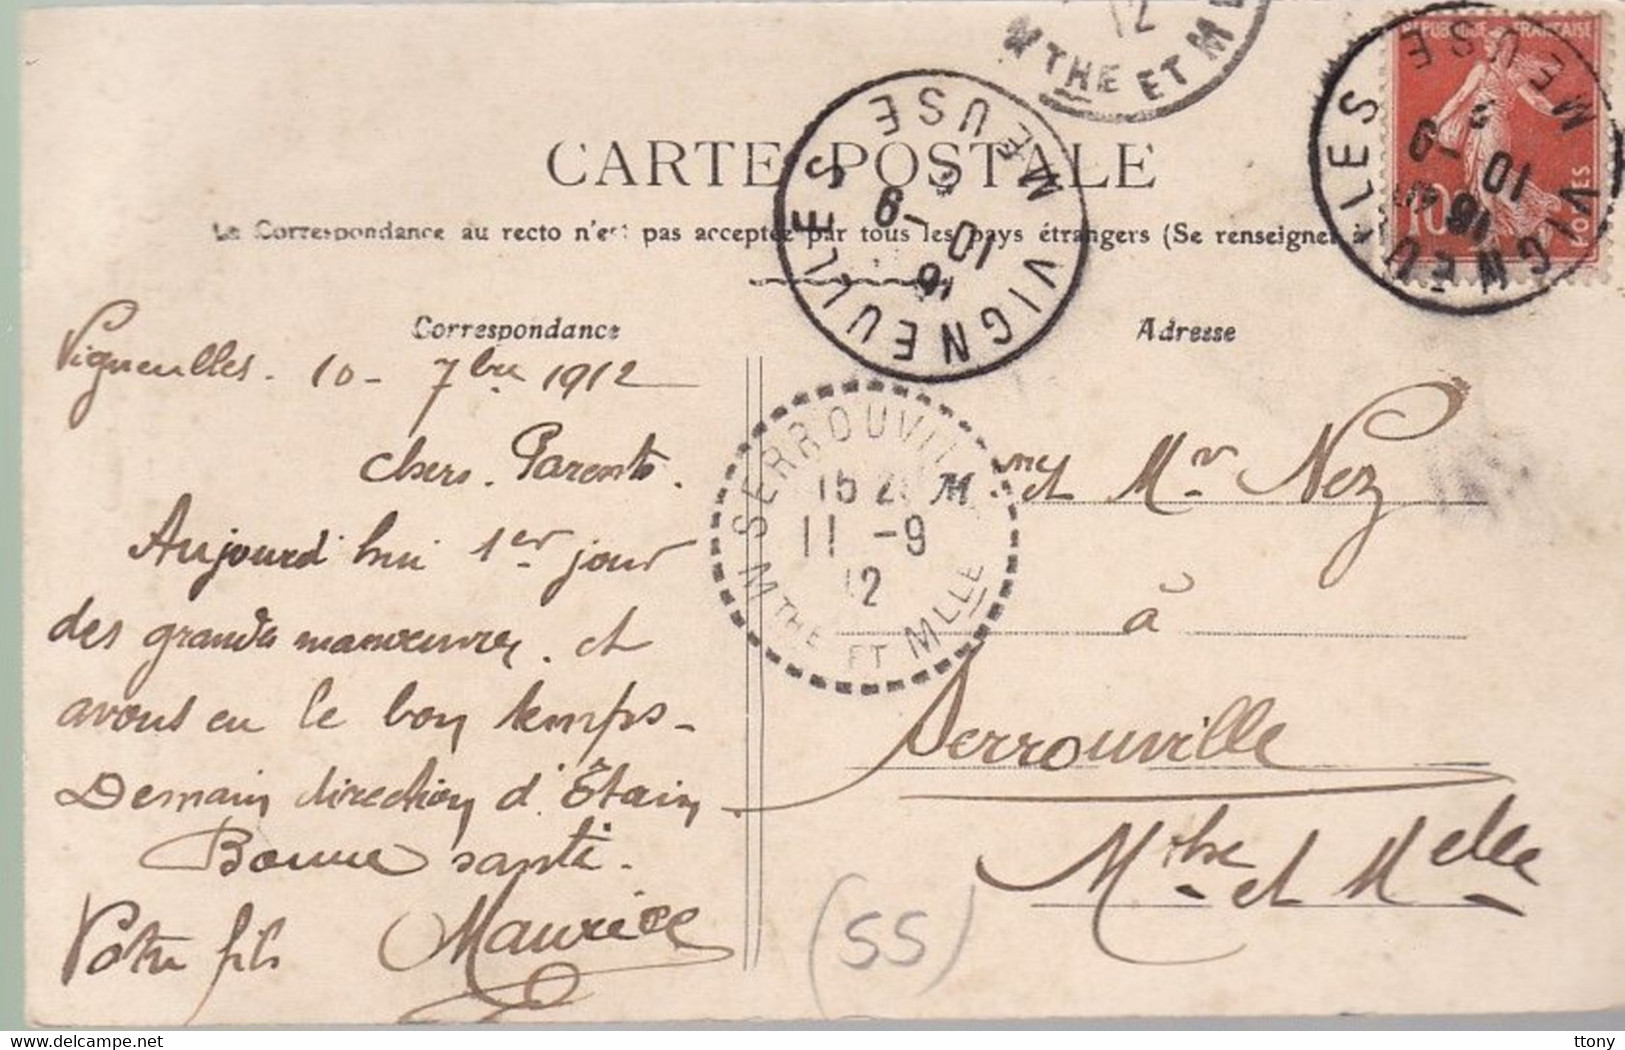 12
MTHE ET M
RÉPUBLIQUE FRANÇAISE
10
VIGNEULLES
MEUSE
16
10 -9
VIGNEULLES
MEUSE
16
10 -9
CARTE POSTALE
La Correspondance au recto n'est pas acceptée par tous les pays étrangers (Se renseigner à
Correspondance
Adresse
Vigneulles. 10 - 7bre 1912
Chers Parents.
Aujourd'hui 1er jour
des grandes manoeuvres. et
avons eu le bon temps -
Demain direction d'Étain
Bonne santé.
Votre fils Maurice
SERROUVILLE
15
11 -9
12
MTHE ET MLLE
Mme et Mr Nez
à
Serrouville
Mthe et Melle
(55)
delcampe.net
ttony